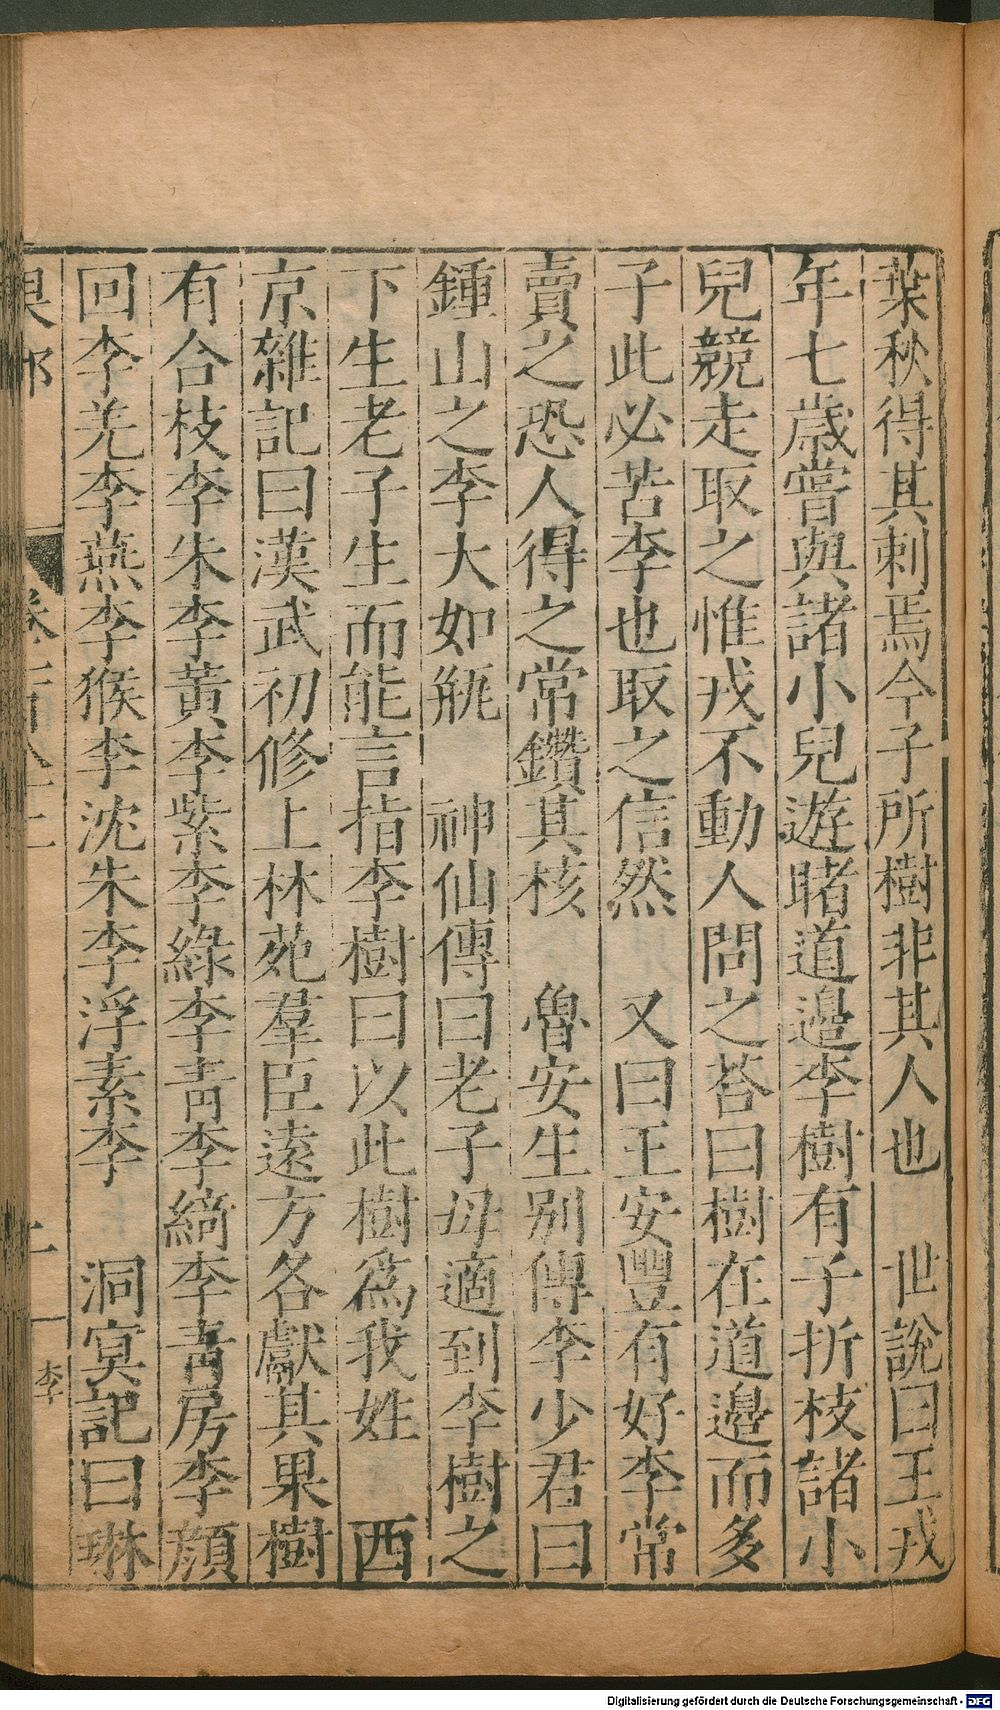 葉秋得其刺焉今子所樹非其人也　世說曰王戎
年七歲嘗與諸小兒遊睹道邊李樹有子折枝諸小
兒競走取之惟戎不動人問之荅曰樹在道邊而多
子此必苦李也取之信然　又曰王安豐有好李常
賣之恐人得之常鑽其核　魯安生別傳李少君曰
鍾山之李大如瓶　神仙傳曰老子母適到李樹之
下生老子生而能言指李樹曰以此樹爲我姓　西
京雜記曰漢武初修上林苑羣臣遠方各獻其果樹
有合枝李朱李黃李紫李綠李靑李綺李靑房李顏
回李羌李燕李猴李沈朱李浮素李　洞冥記曰琳
果部
李
Digitalisierung gefördert durch die Deutsche Forschungsgemeinschaft - DFG